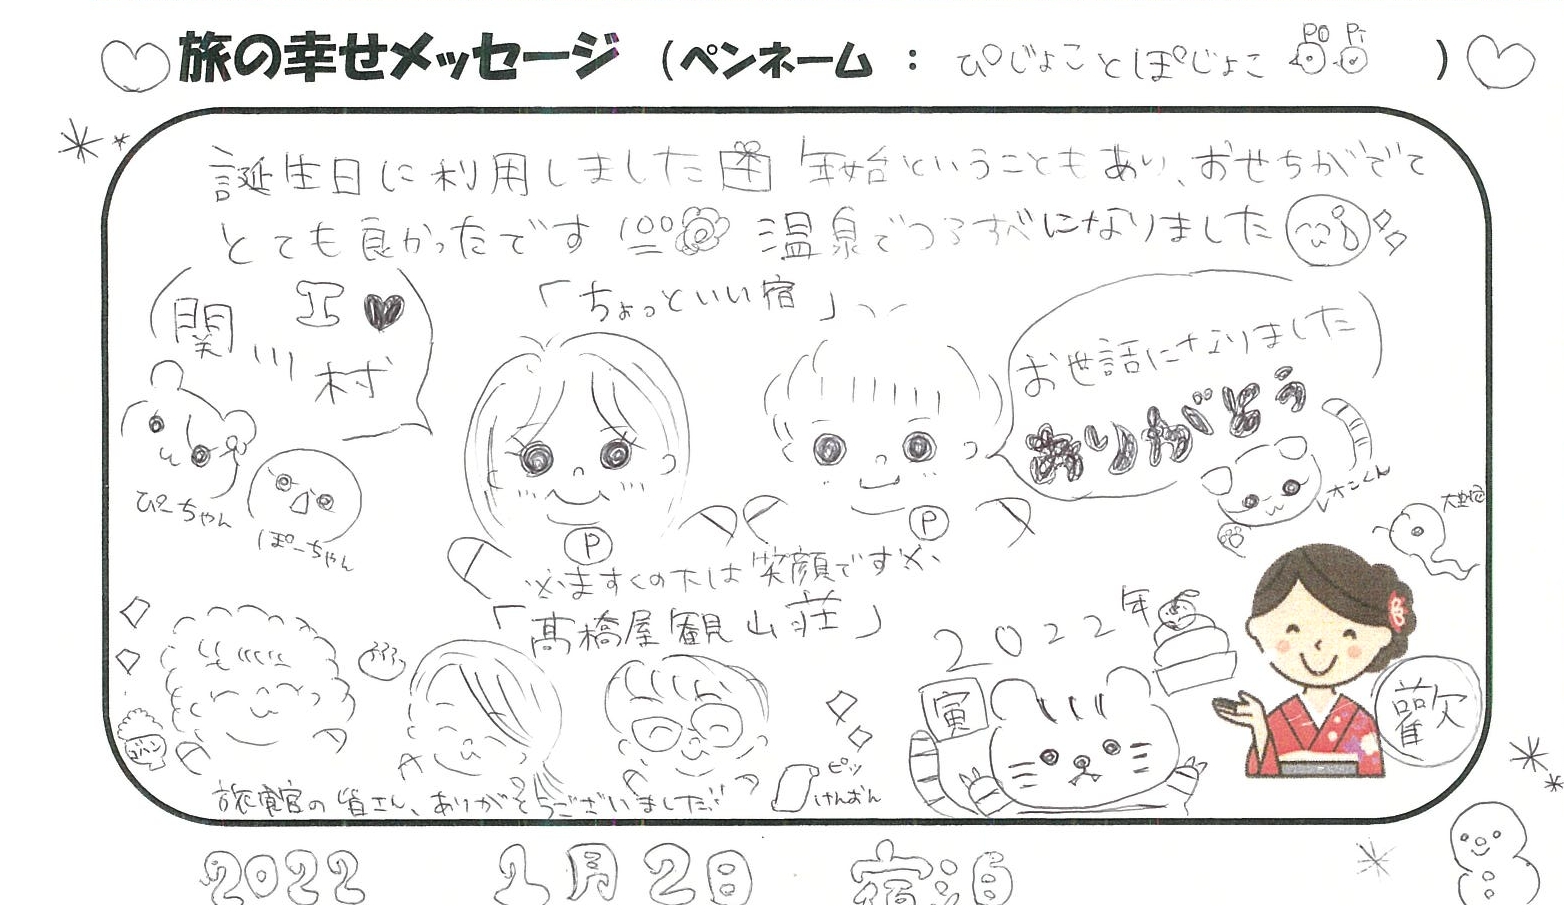 旅の幸せメッセージ (ペンネーム : ぴじょことぽじょこ PO Pi )
誕生日に利用しました 年始ということもあり、おせちがでて
とても良かったです 100 温泉でつるすべになりました
I ♥
関川村
「ちょっといい宿」
お世話になりました
ありがとう
ぴーちゃん
ぽーちゃん
P
P
※ますくの下は笑顔です※
「髙橋屋観山荘」
2022年
寅
歓
ゴハン
ピッ
けんおん
旅館の皆さん、ありがとうございました!!
2022 1月2日 宿泊